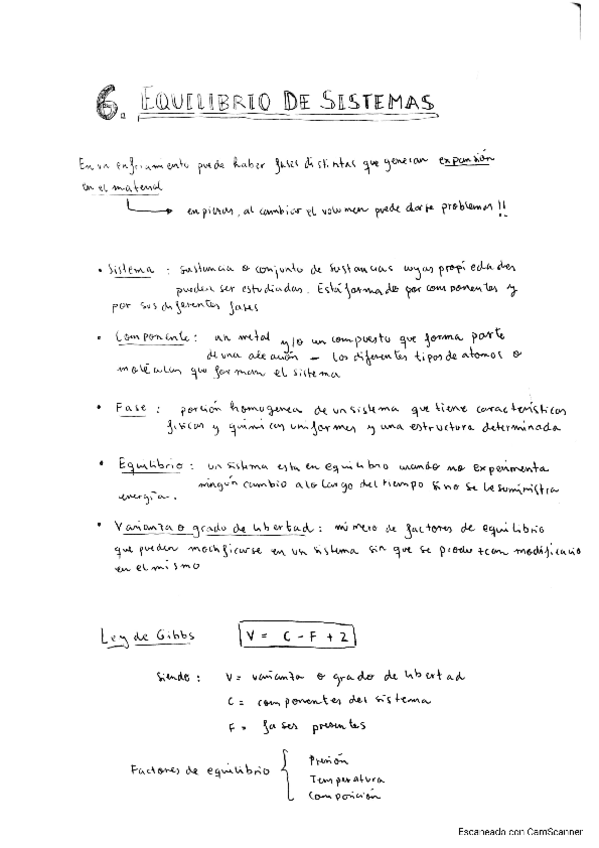 6. EQUILIBRIO DE SISTEMAS
En un enfriamiento puede haber fases distintas que generan expansión
en el material
en piezas, al cambiar el volumen puede darte problemas!!
• Sistema : sustancia o conjunto de sustancias cuyas propiedades
pueden ser estudiadas. Está formado por componentes y
por sus diferentes fases
• Componente : un metal y/o un compuesto que forma parte
de una aleación – los diferentes tipos de atomos o
moléculas que forman el sistema
• Fase : porción homogenea de un sistema que tiene características
físicas y químicas uniformes y una estructura determinada
• Equilibrio : un sistema esta en equilibrio cuando no experimenta
ningún cambio a lo largo del tiempo si no se le suministra
energía.
• Varianza o grado de libertad : número de factores de equilibrio
que pueden modificarse en un sistema sin que se produzcan modificacio
en el mismo
Ley de Gibbs V = C - F + 2
Siendo : V = varianza o grado de libertad
C = componentes del sistema
F = fases presentes
Factores de equilibrio { Presión
Temperatura
Composición
Escaneado con CamScanner